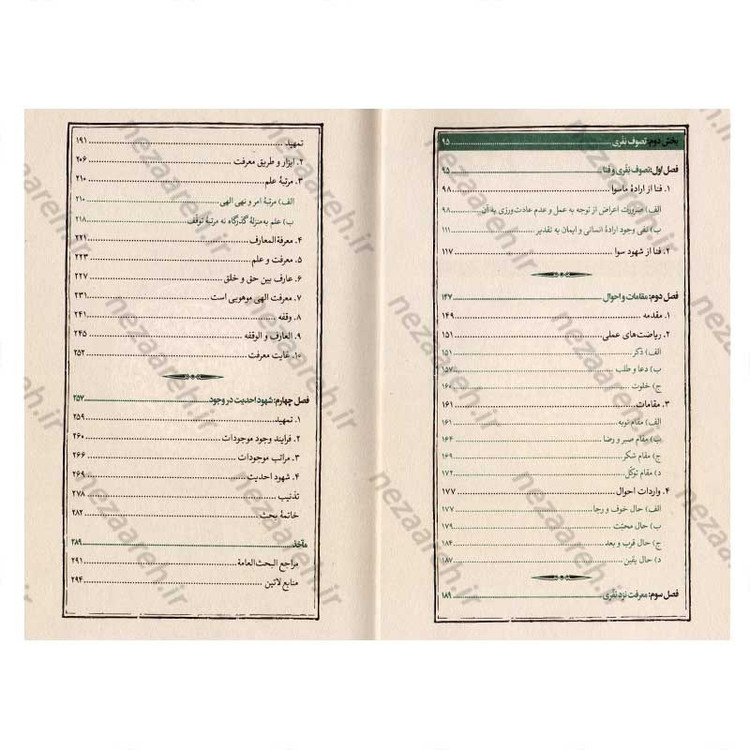 بخش دوم: تصوف نفّری ۹۵
فصل اول: تصوف نفّری و فنا ۹۵
۱. فنا از ارادهٔ ماسوا ۹۸
الف) ضرورت اعراض از توجه به عمل و عدم عادت‌ورزی به آن ۹۸
ب) نفی وجود ارادهٔ انسانی و ایمان به تقدیر ۱۱۱
۲. فنا از شهود سوا ۱۱۷
فصل دوم: مقامات و احوال ۱۴۷
۱. مقدمه ۱۴۹
۲. ریاضت‌های عملی ۱۵۱
الف) ذکر ۱۵۱
ب) دعا و طلب ۱۵۷
ج) خلوت ۱۶۰
۳. مقامات ۱۶۱
الف) مقام توبه ۱۶۱
ب) مقام صبر و رضا ۱۶۴
ج) مقام شکر ۱۶۹
د) مقام توکّل ۱۷۲
۴. واردات احوال ۱۷۷
الف) حال خوف و رجا ۱۷۷
ب) حال محبّت ۱۷۹
ج) حال قرب و بعد ۱۸۴
د) حال یقین ۱۸۷
فصل سوم: معرفت نزد نفّری ۱۸۹
تمهید ۱۹۱
۲. ابزار و طریق معرفت ۲۰۶
۳. مرتبهٔ علم ۲۱۰
الف) مرتبهٔ امر و نهی الهی ۲۱۰
ب) علم به‌منزلهٔ گذرگاه نه مرتبهٔ توقف ۲۱۸
۴. معرفة‌المعارف ۲۲۱
۵. معرفت و علم ۲۲۳
۶. عارف بین حق و خلق ۲۲۷
۷. معرفت الهی موهوبی است ۲۳۱
۸. وقفه ۲۴۱
۹. العارف و الوقفه ۲۴۵
۱۰. غایت معرفت ۲۵۲
فصل چهارم: شهود احدیت در وجود ۲۵۷
۱. تمهید ۲۵۹
۲. فرایند وجود موجودات ۲۶۰
۳. مراتب موجودات ۲۶۶
۴. شهود احدیت ۲۶۹
تذنیب ۲۷۸
خاتمهٔ بحث ۲۸۲
مآخذ ۲۸۹
مراجع البحث العامة ۲۹۱
منابع لاتین ۲۹۴
nezaareh.ir